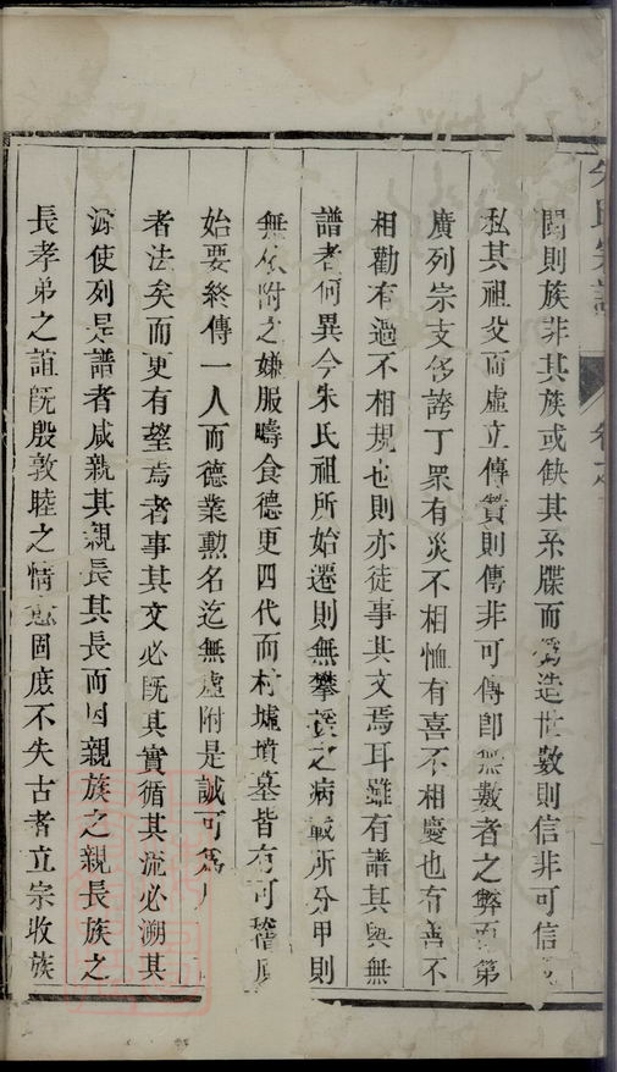 朱氏宗譜
卷之
閥則族非其族或缺其系牒而僞造世數則信非可信
私其祖父而虛立傳贊則傳非可傳卽無數者之弊而第
廣列宗支侈誇丁眾有災不相恤有喜不相慶也有善不
相勸有過不相規也則亦徒事其文焉耳雖有譜其與無
譜者何異今朱氏祖所始遷則無攀援之病載所分甲則
無依附之嫌服疇食德更四代而村墟墳墓皆有可稽原
始要終傳一人而德業勳名迄無虛附是誠可爲
者法矣而更有望焉者事其文必既其實循其流必溯其
源使列是譜者咸親其親長其長而因親族之親長族之
長孝弟之誼既殷敦睦之情愈固庶不失古者立宗收族